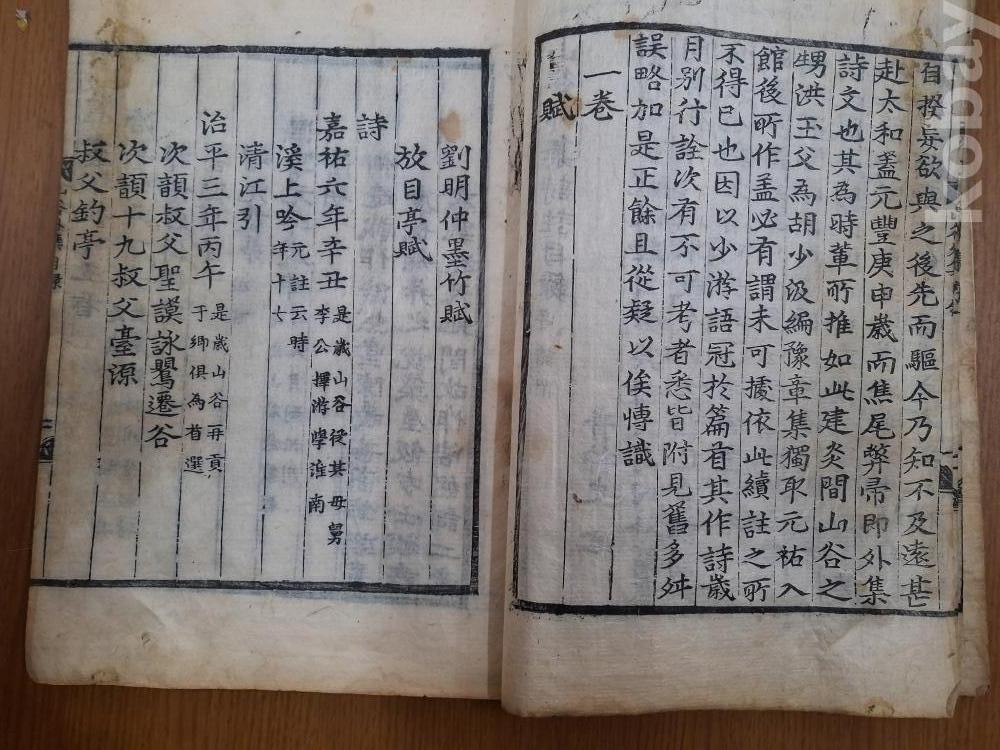 自揆每欲與之後先而驅今乃知不及遠甚
赴太和盖元豐庚申歲而焦尾弊帚即外集
詩文也其為時輩所推如此建炎間山谷之
甥洪玉父為胡少汲編豫章集獨取元祐入
館後所作盖必有謂未可據依此續註之所
不得已也因以少游語冠於篇首其作詩歲
月別行詮次有不可考者悉皆附見舊多舛
誤略加是正餘且從疑以俟博識
一卷
賦
劉明仲墨竹賦
放目亭賦
詩
嘉祐六年辛丑 是歲山谷從其母舅李公擇游學淮南
溪上吟 元註云時年十七
清江引
治平三年丙午 是歲山谷再貢于鄉俱為首選
次韻叔父聖謨詠鸎遷谷
次韻十九叔父臺源
叔父釣亭
kobay